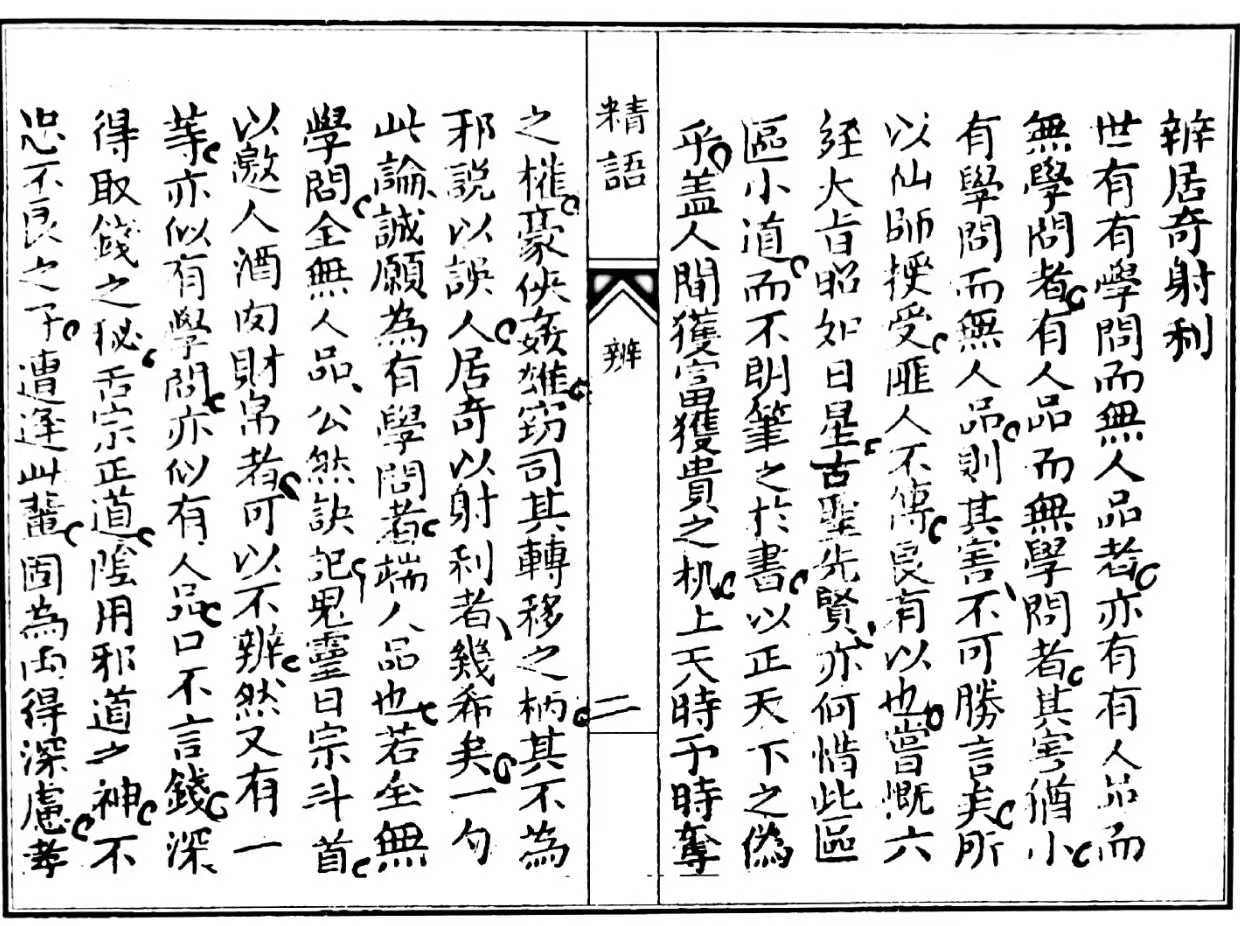 辨居奇射利
世有有學問而無人品者亦有有人品而
無學問者有人品而無學問者其害猶小
有學問而無人品則其害不可勝言矣所
以仙師授受匪人不傳良有以也嘗慨六
經大旨昭如日星古聖先賢亦何惜此區
區小道而不明筆之於書以正天下之偽
乎盖人間獲富獲貴之机上天時予時奪
精語
辨
二
之權豪俠姦雄竊司其轉移之柄其不為
邪説以誤人居奇以射利者幾希矣一勺
此論誠願為有學問者端人品也若全無
學問全無人品公然訣記鬼靈日宗斗首
以邀人酒肉財帛者可以不辨然又有一
等亦似有學問亦似有人品口不言錢深
得取錢之秘舌宗正道陰用邪道之神不
忠不良之子遭逢此輩固為両得深慮孝